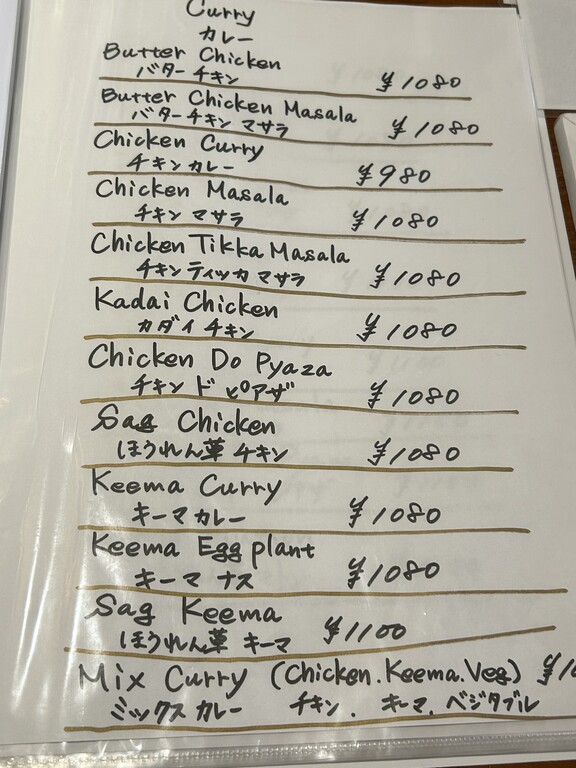 Curry
カレー
Butter Chicken
バターチキン ¥1080
Butter Chicken Masala
バターチキン マサラ ¥1080
Chicken Curry
チキンカレー ¥980
Chicken Masala
チキン マサラ ¥1080
Chicken Tikka Masala
チキンティッカ マサラ ¥1080
Kadai Chicken
カダイ チキン ¥1080
Chicken Do Pyaza
チキン ド ピアザ ¥1080
Sag Chicken
ほうれん草 チキン ¥1080
Keema Curry
キーマカレー ¥1080
Keema Egg plant
キーマ ナス ¥1080
Sag Keema
ほうれん草 キーマ ¥1100
Mix Curry (Chicken.Keema.Veg)
ミックスカレー チキン. キーマ. ベジタブル